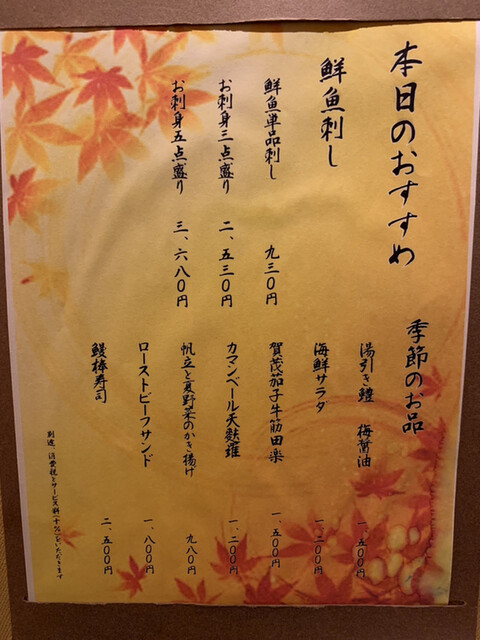 本日のおすすめ
鮮魚刺し
鮮魚単品刺し 九三〇円
お刺身三点盛り 二、五三〇円
お刺身五点盛り 三、六八〇円
季節のお品
湯引き鱧 梅醤油 一、五〇〇円
海鮮サラダ 一、二〇〇円
賀茂茄子牛筋田楽 一、五〇〇円
カマンベール天麩羅 一、二〇〇円
帆立と夏野菜のかき揚げ 九八〇円
ローストビーフサンド 一、八〇〇円
鰻棒寿司 二、五〇〇円
別途、消費税とサービス料(十%)をいただきます